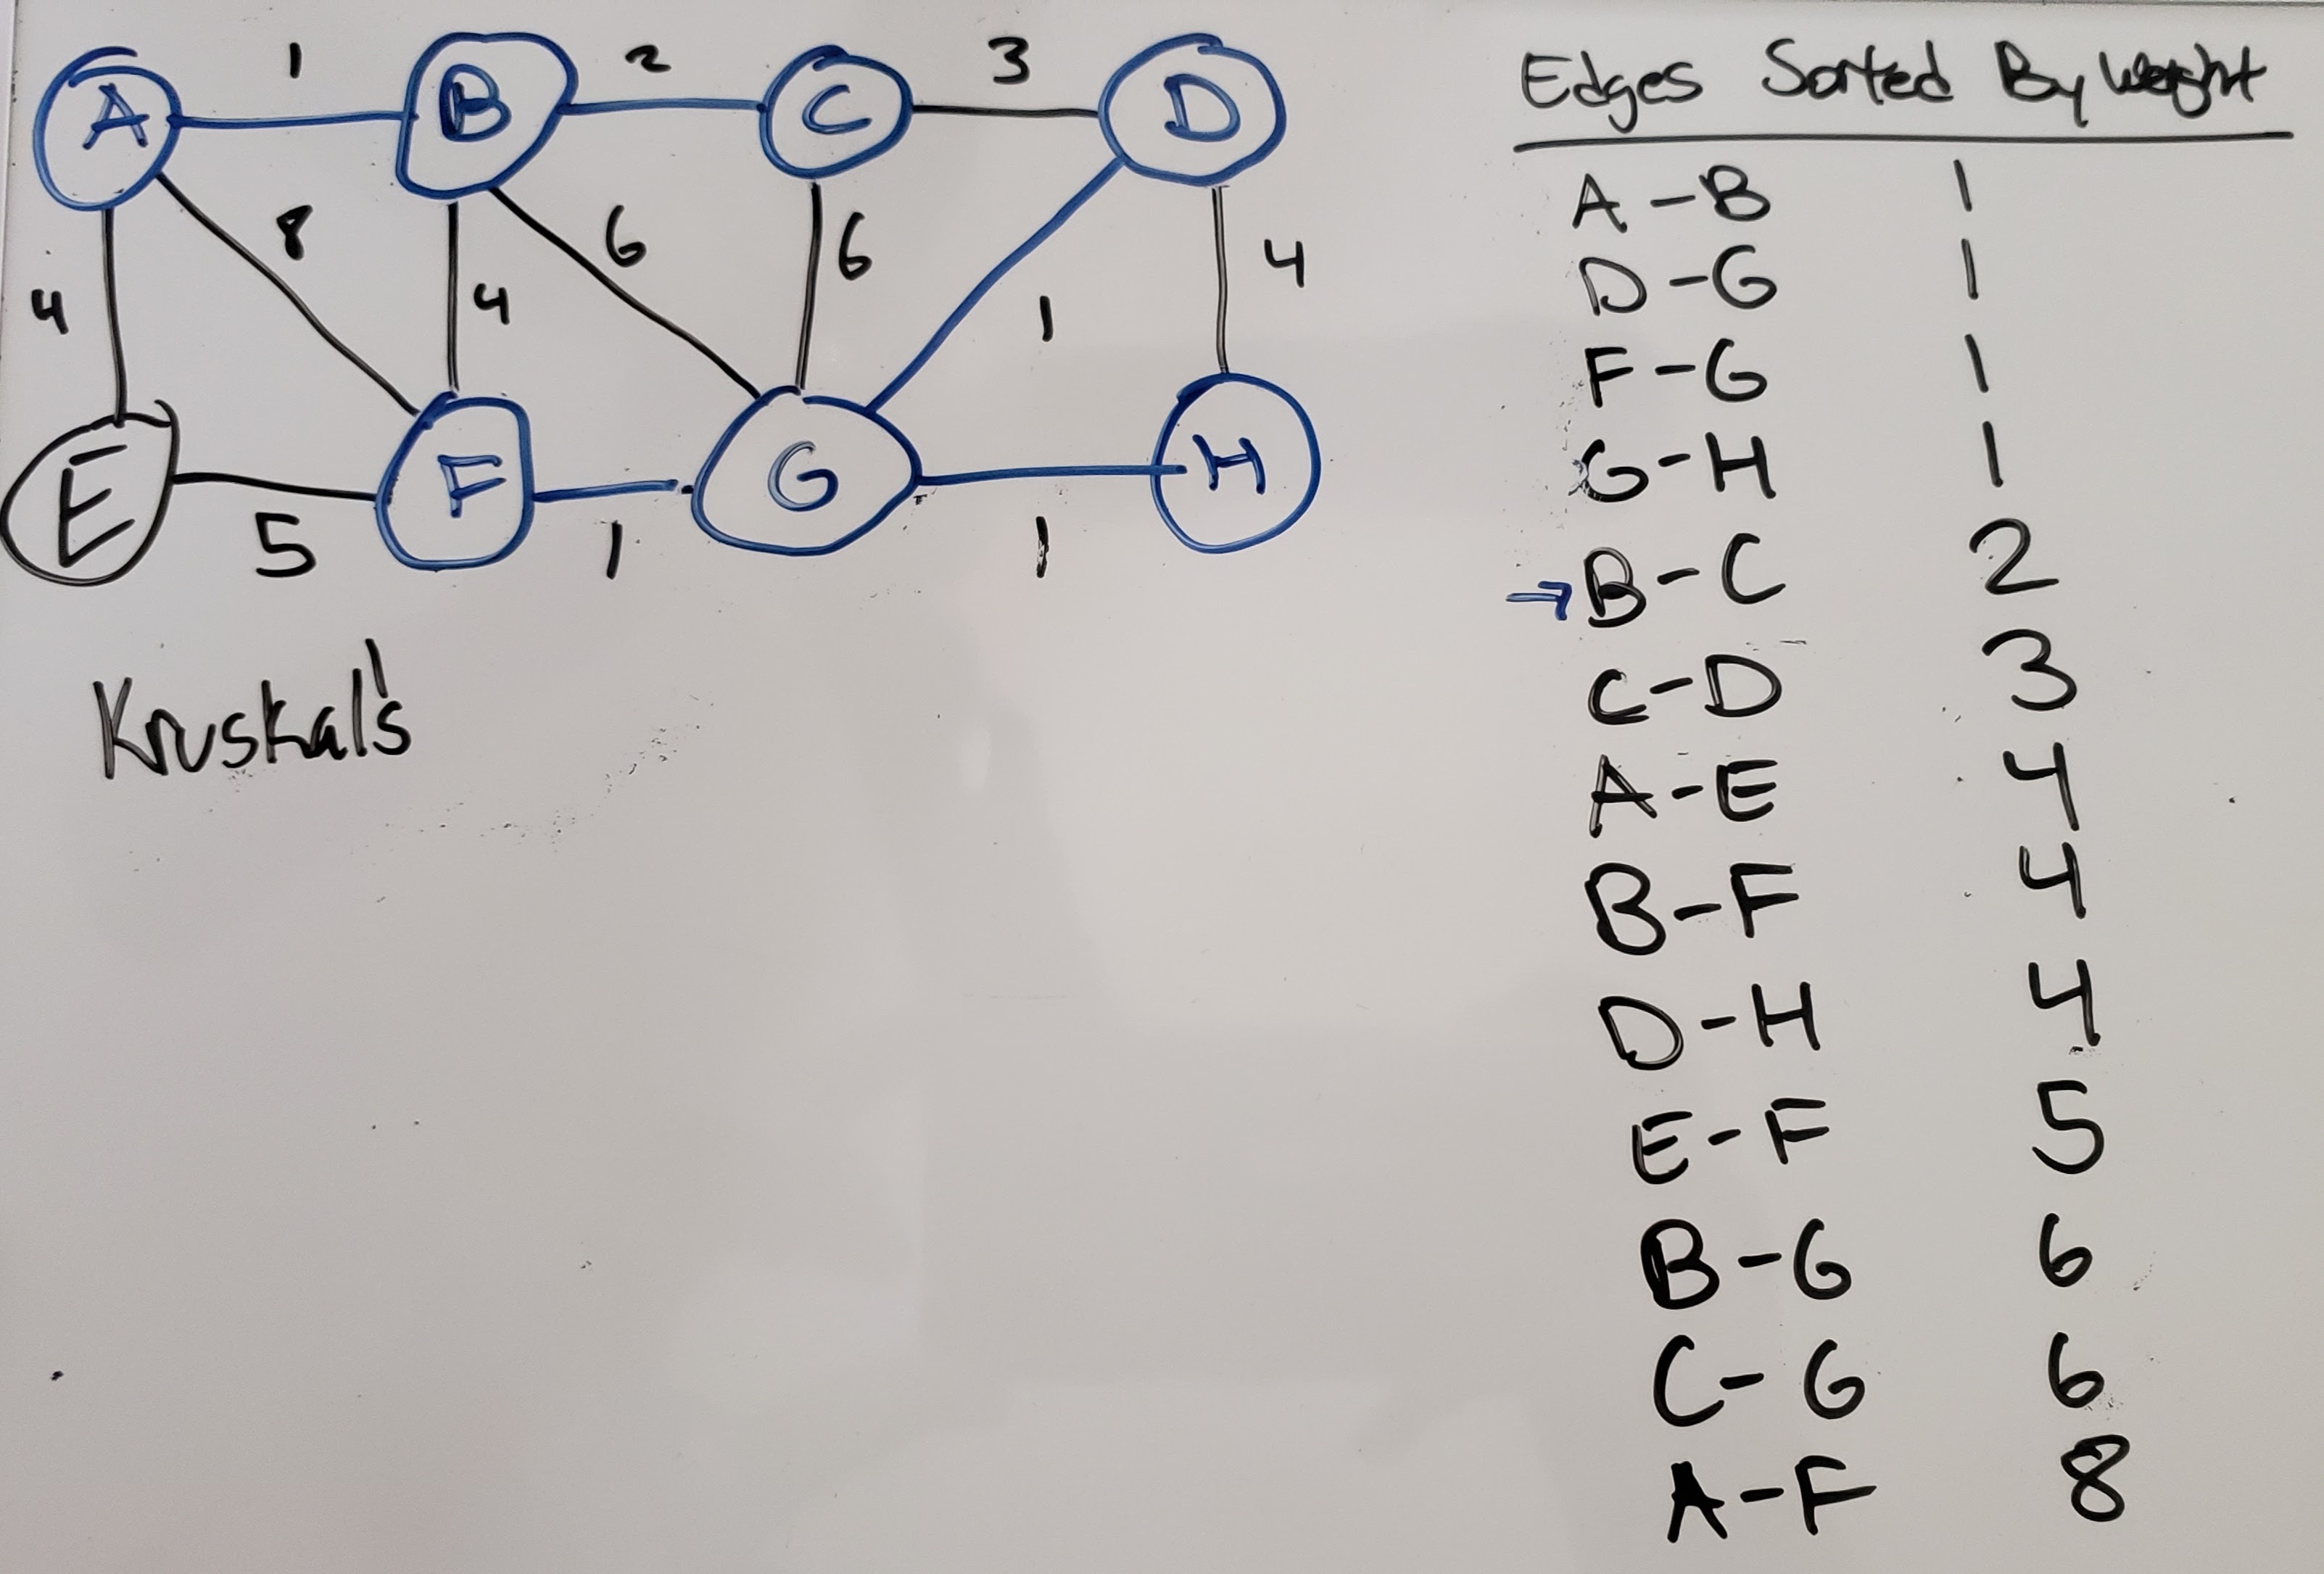 1 2 3
A B C D
8 6 6 4
4 4 1
E F G H
5 1 1
Kruskal's
Edges Sorted By Weight
A-B 1
D-G 1
F-G 1
G-H 1
→B-C 2
C-D 3
A-E 4
B-F 4
D-H 4
E-F 5
B-G 6
C-G 6
A-F 8